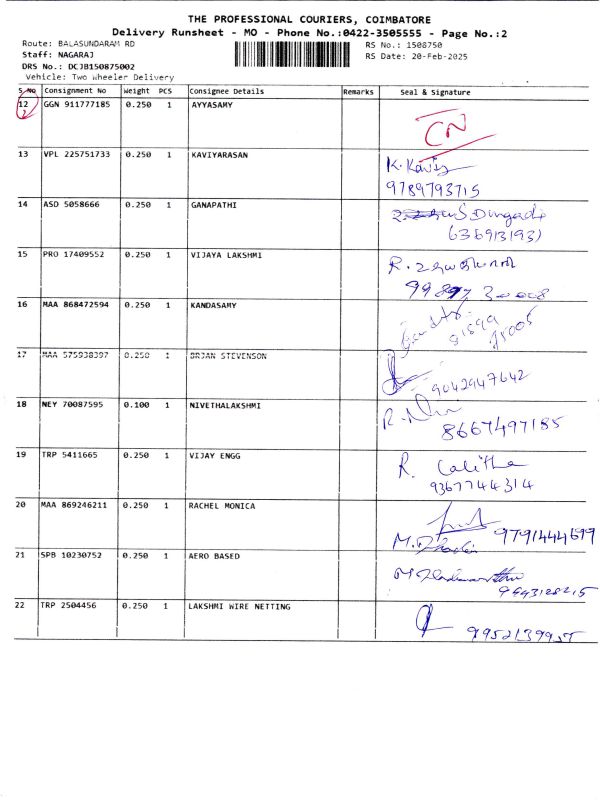 THE PROFESSIONAL COURIERS, COIMBATORE
Delivery Runsheet - MO - Phone No.:0422-3505555 - Page No.:2
Route: BALASUNDARAM RD RS No.: 1508750
Staff: NAGARAJ RS Date: 20-Feb-2025
DRS No.: DCJB150875002
Vehicle: Two Wheeler Delivery
S No Consignment No Weight PCS Consignee Details Remarks Seal & Signature
12 GGN 911777185 0.250 1 AYYASAMY
2 CN
13 VPL 225751733 0.250 1 KAVIYARASAN
K. Kavi
9789793715
14 ASD 5058666 0.250 1 GANAPATHI
6369131931
15 PRO 17409552 0.250 1 VIJAYA LAKSHMI
R.
16 MAA 868472594 0.250 1 KANDASAMY
17 MAA 575938397 0.250 1 BRJAN STEVENSON
9042947642
18 NEY 70087595 0.100 1 NIVETHALAKSHMI
8667497185
19 TRP 5411665 0.250 1 VIJAY ENGG
R. Lalitha
9367744314
20 MAA 869246211 0.250 1 RACHEL MONICA
9791444699
21 SPB 10230752 0.250 1 AERO BASED
22 TRP 2504456 0.250 1 LAKSHMI WIRE NETTING